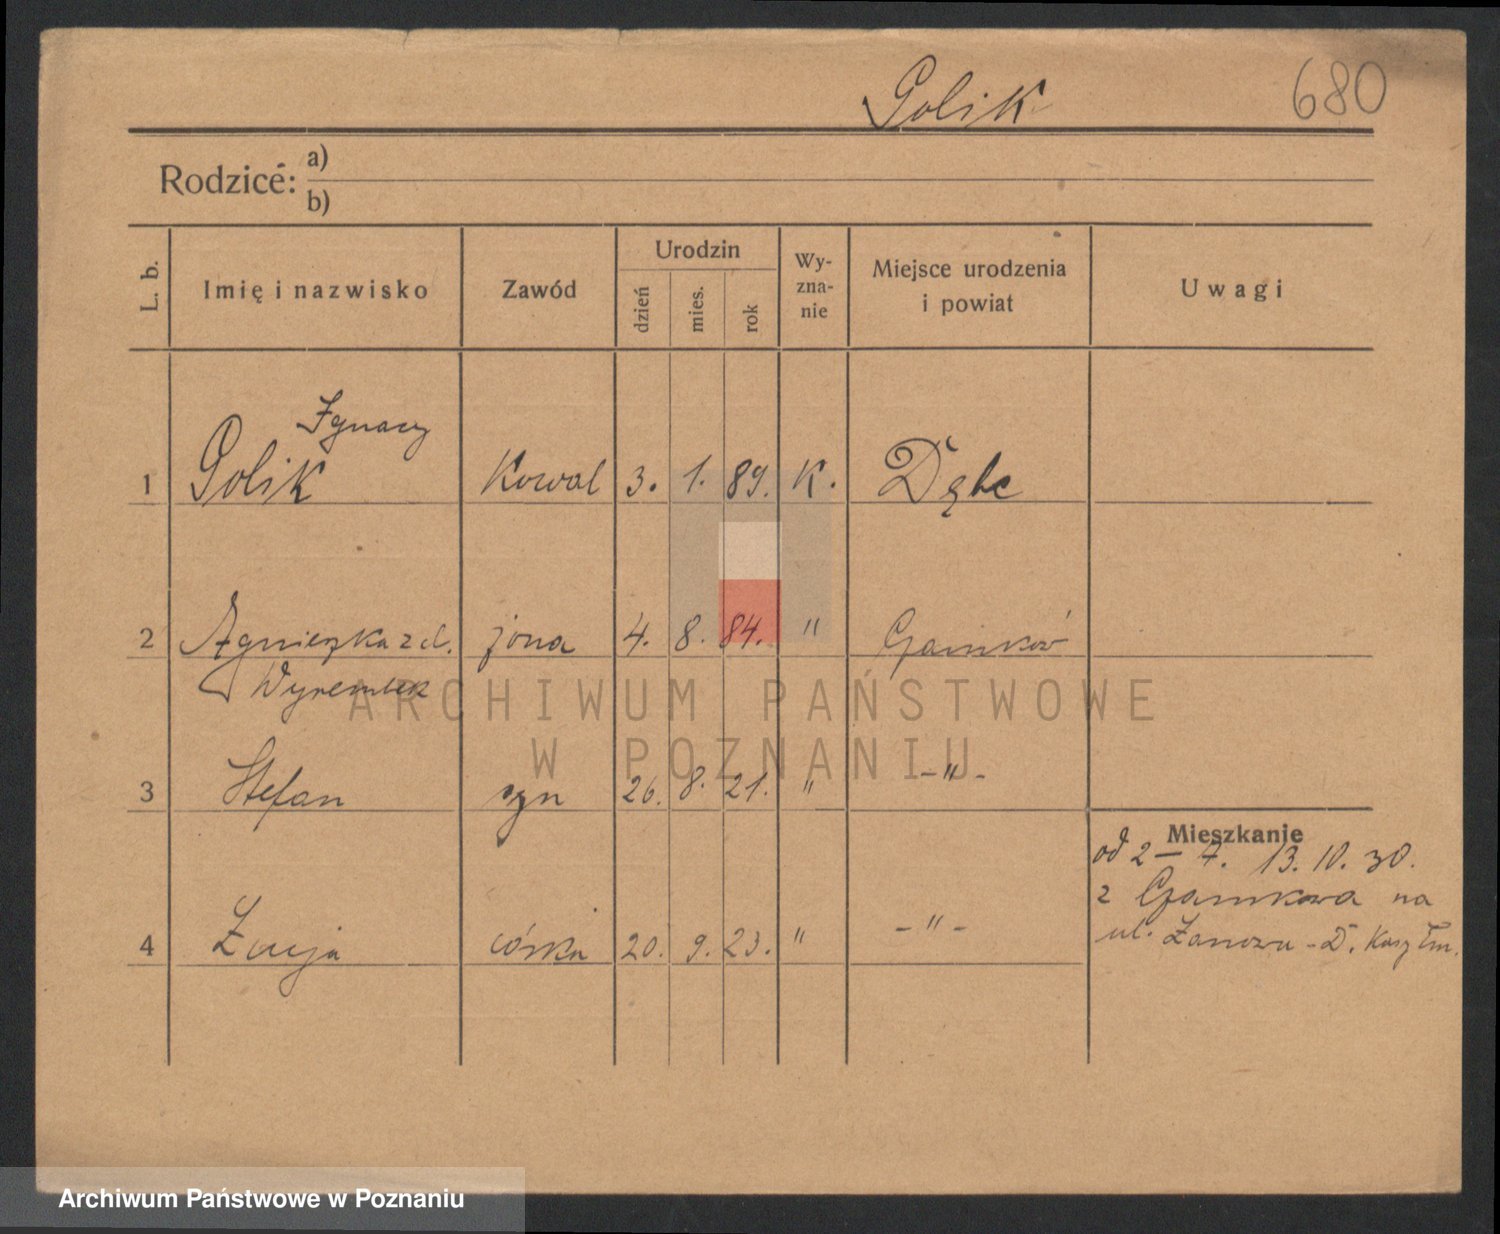 Golik
680
Rodzice: a)
b)
L. b. Imię i nazwisko Zawód Urodzin dzień mies. rok Wy-zna-nie Miejsce urodzenia i powiat Uwagi
Ignacy
1 Golik Kowal 3. 1. 89. K. Dębe
2 Agnieszka z d. żona 4. 8. 84. " Czarnków
Wyrembek
3 Stefan syn 26. 8. 21. " -"-
Mieszkanie
od 2 - 7. 13. 10. 30.
z Czarnkowa na
4 Łucja córka 20. 9. 23. " -"-
ul.
ARCHIWUM PAŃSTWOWE
W POZNANIU
Archiwum Państwowe w Poznaniu